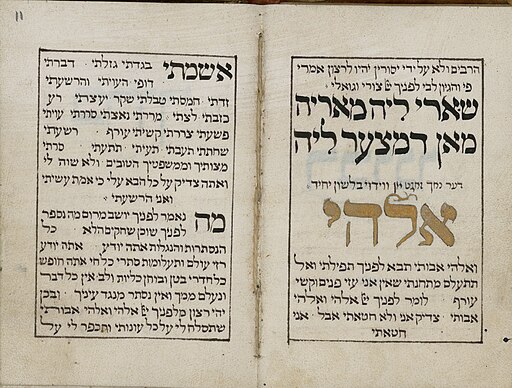 הרבים ולא על ידי יסורין יהיו לרצון אמרי
פי והגיון לבי לפניך יי צורי וגואלי
שארי ליה מאריה
מאן דמצער ליה
דער נאך זאגט וידוי בלשון יחיד
אלהי
ואלהי אבותי תבא לפניך תפילתי ואל
תתעלם מתחנתי שאין אני עזי פנים וקשי
עורף לומר לפניך יי אלהי ואלהי
אבותי צדיק אני ולא חטאתי אבל אני
חטאתי
11
אשמתי בגדתי גזלתי דברתי
דופי העויתי והרשעתי
זדתי חמסתי טפלתי שקר יעצתי רע
כזבתי לצתי מרדתי נאצתי סררתי עויתי
פשעתי צררתי קשיתי עורף רשעתי
שחתתי תעבתי תעיתי תתעתי סרתי
מצותיך וממשפטיך הטובים ולא שוה לי
ואתה צדיק על כל הבא עלי כי אמת עשיתי
ואני הרשעתי
מה נאמר לפניך יושב מרום ומה נספר
לפניך שוכן שחקים הלא כל
הנסתרות והנגלות אתה יודע אתה יודע
רזי עולם ותעלומות סתרי כל חי אתה חופש
כל חדרי בטן ובוחן כליות ולב אין כל דבר
נעלם ממך ואין נסתר מנגד עיניך ובכן
יהי רצון מלפניך יי אלהי ואלהי אבותי
שתסלח לי על כל עונותי ותכפר לי על